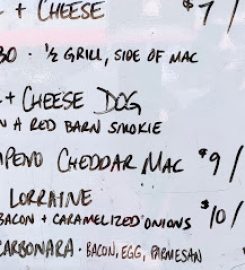 + CHEESE $7/
· ½ GRILL, SIDE OF MAC
+ CHEESE DOG
A RED BARN SMOKIE
CHEDDAR MAC $9/
LORRAINE
BACON + CARAMELIZED ONIONS $10/
CARBONARA · BACON, EGG, PARMESAN